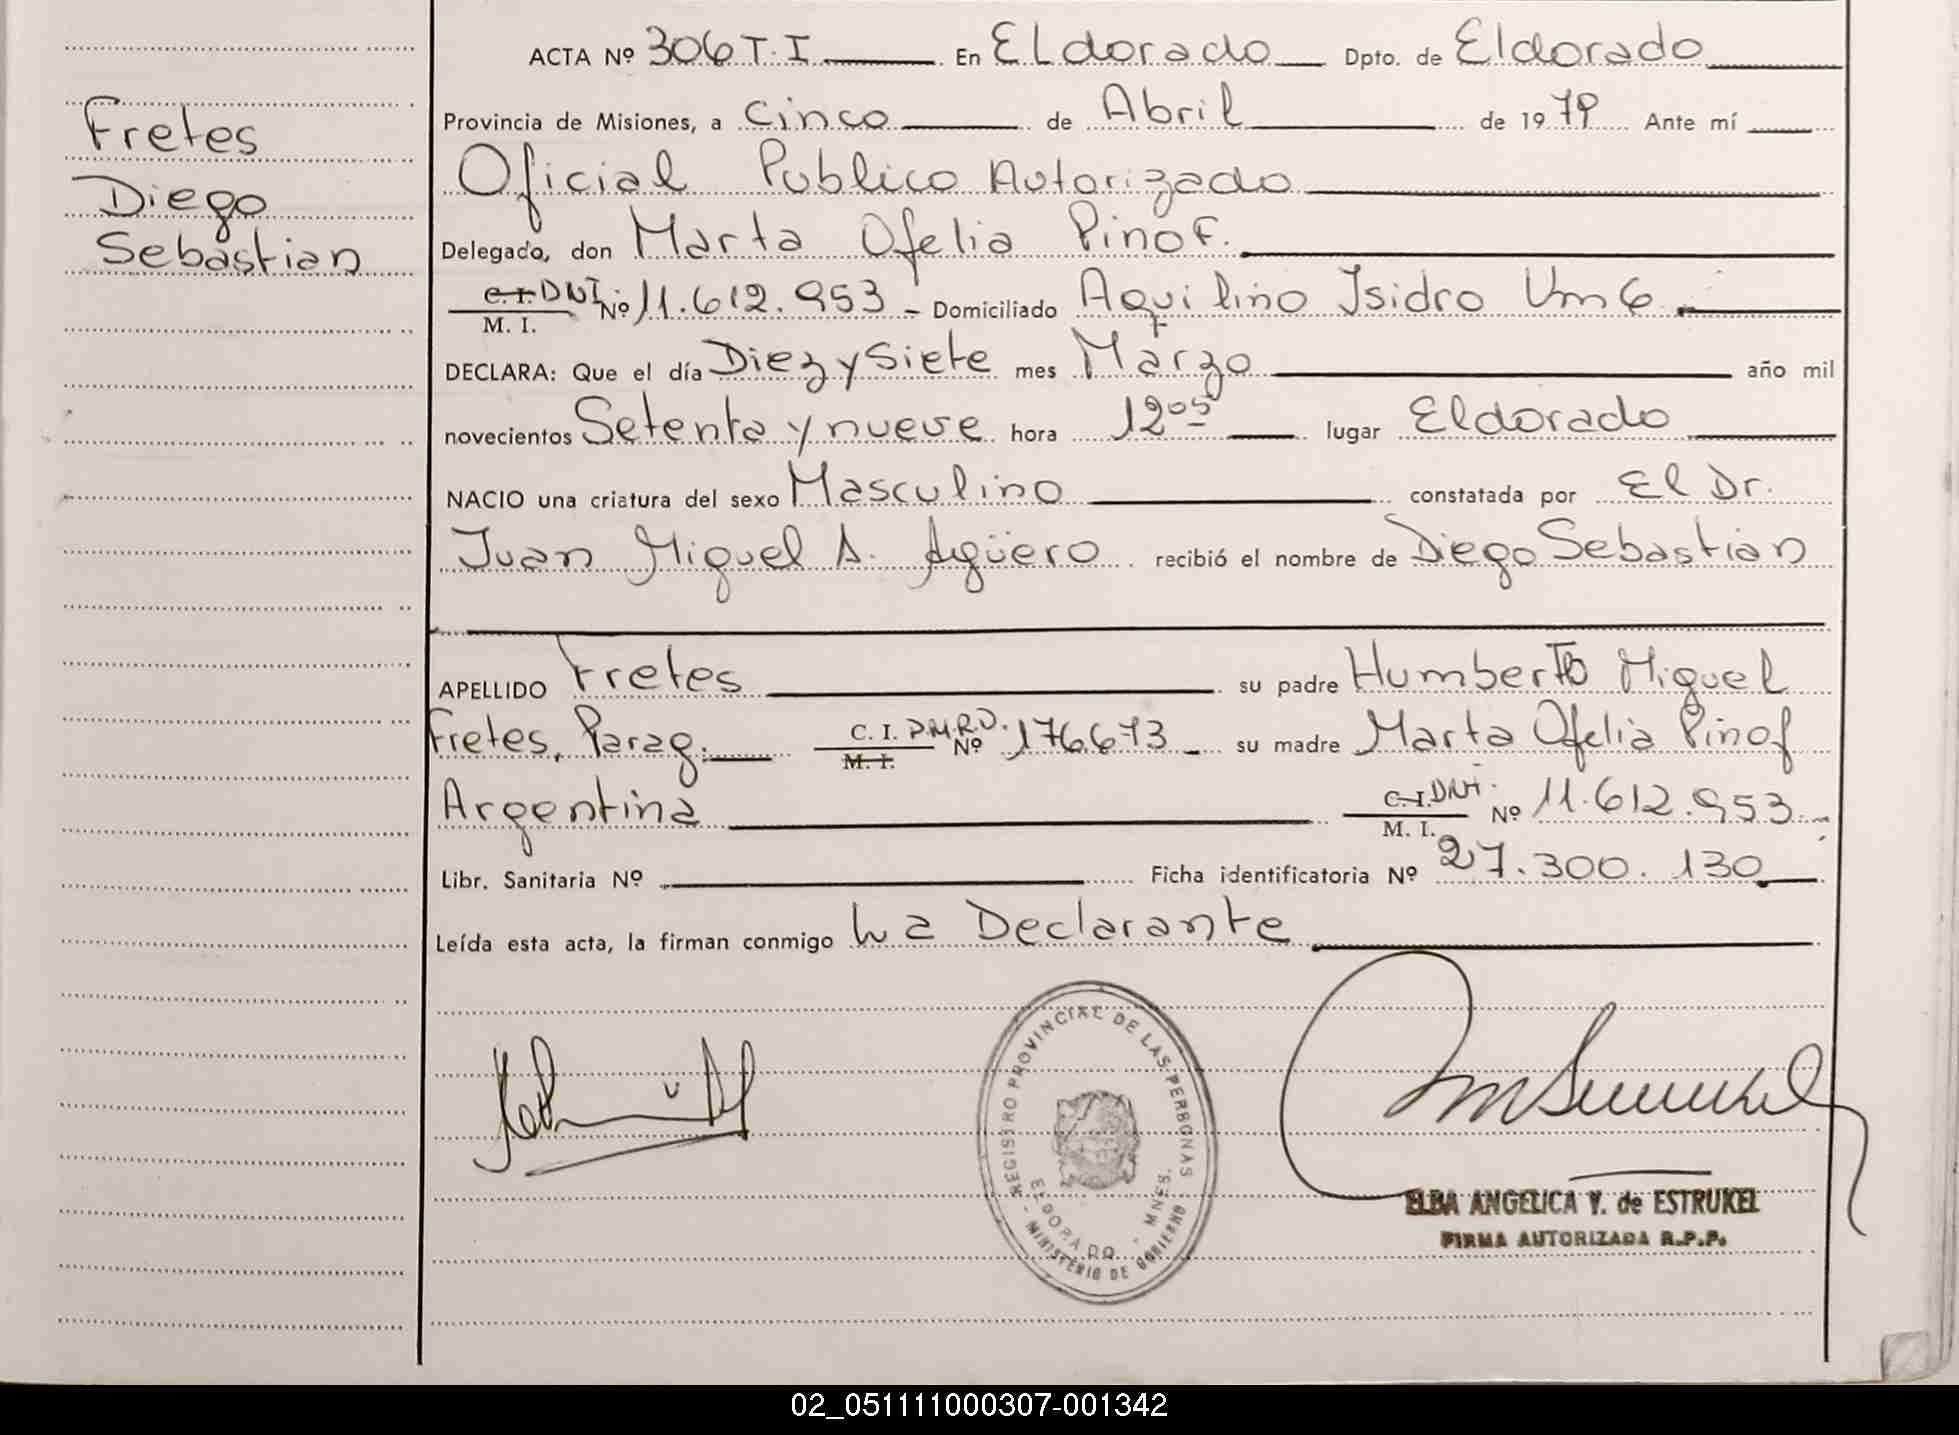 Fretes
Diego
Sebastian
ACTA Nº 306 T. I. En Eldorado Dpto. de Eldorado
Provincia de Misiones, a cinco de Abril de 1979 Ante mí
Oficial Publico Autorizado
Delegado, don Marta Ofelia Pinof.
C. I. DNI M. I. Nº 11.612.953 - Domiciliado Aquilino Isidro Km 6
DECLARA: Que el día Diez y Siete mes Marzo año mil
novecientos Setenta y nueve hora 12⁰⁵ lugar Eldorado
NACIO una criatura del sexo Masculino constatada por El Dr.
Juan Miguel A. Agüero recibió el nombre de Diego Sebastian
APELLIDO Fretes su padre Humberto Miguel
Fretes, Parag. C. I. P.M.R.D. M. I. Nº 176673 su madre Marta Ofelia Pinof
Argentina C. I. DNI. M. I. Nº 11.612.953.-
Libr. Sanitaria Nº Ficha identificatoria Nº 27.300.130
Leída esta acta, la firman conmigo La Declarante
REGISTRO PROVINCIAL DE LAS PERSONAS
ELDORADO - MNES.
- MINISTERIO DE GOBIERNO -
ELBA ANGELICA Y. de ESTRUKEL
FIRMA AUTORIZADA R.P.P.
02_051111000307-001342